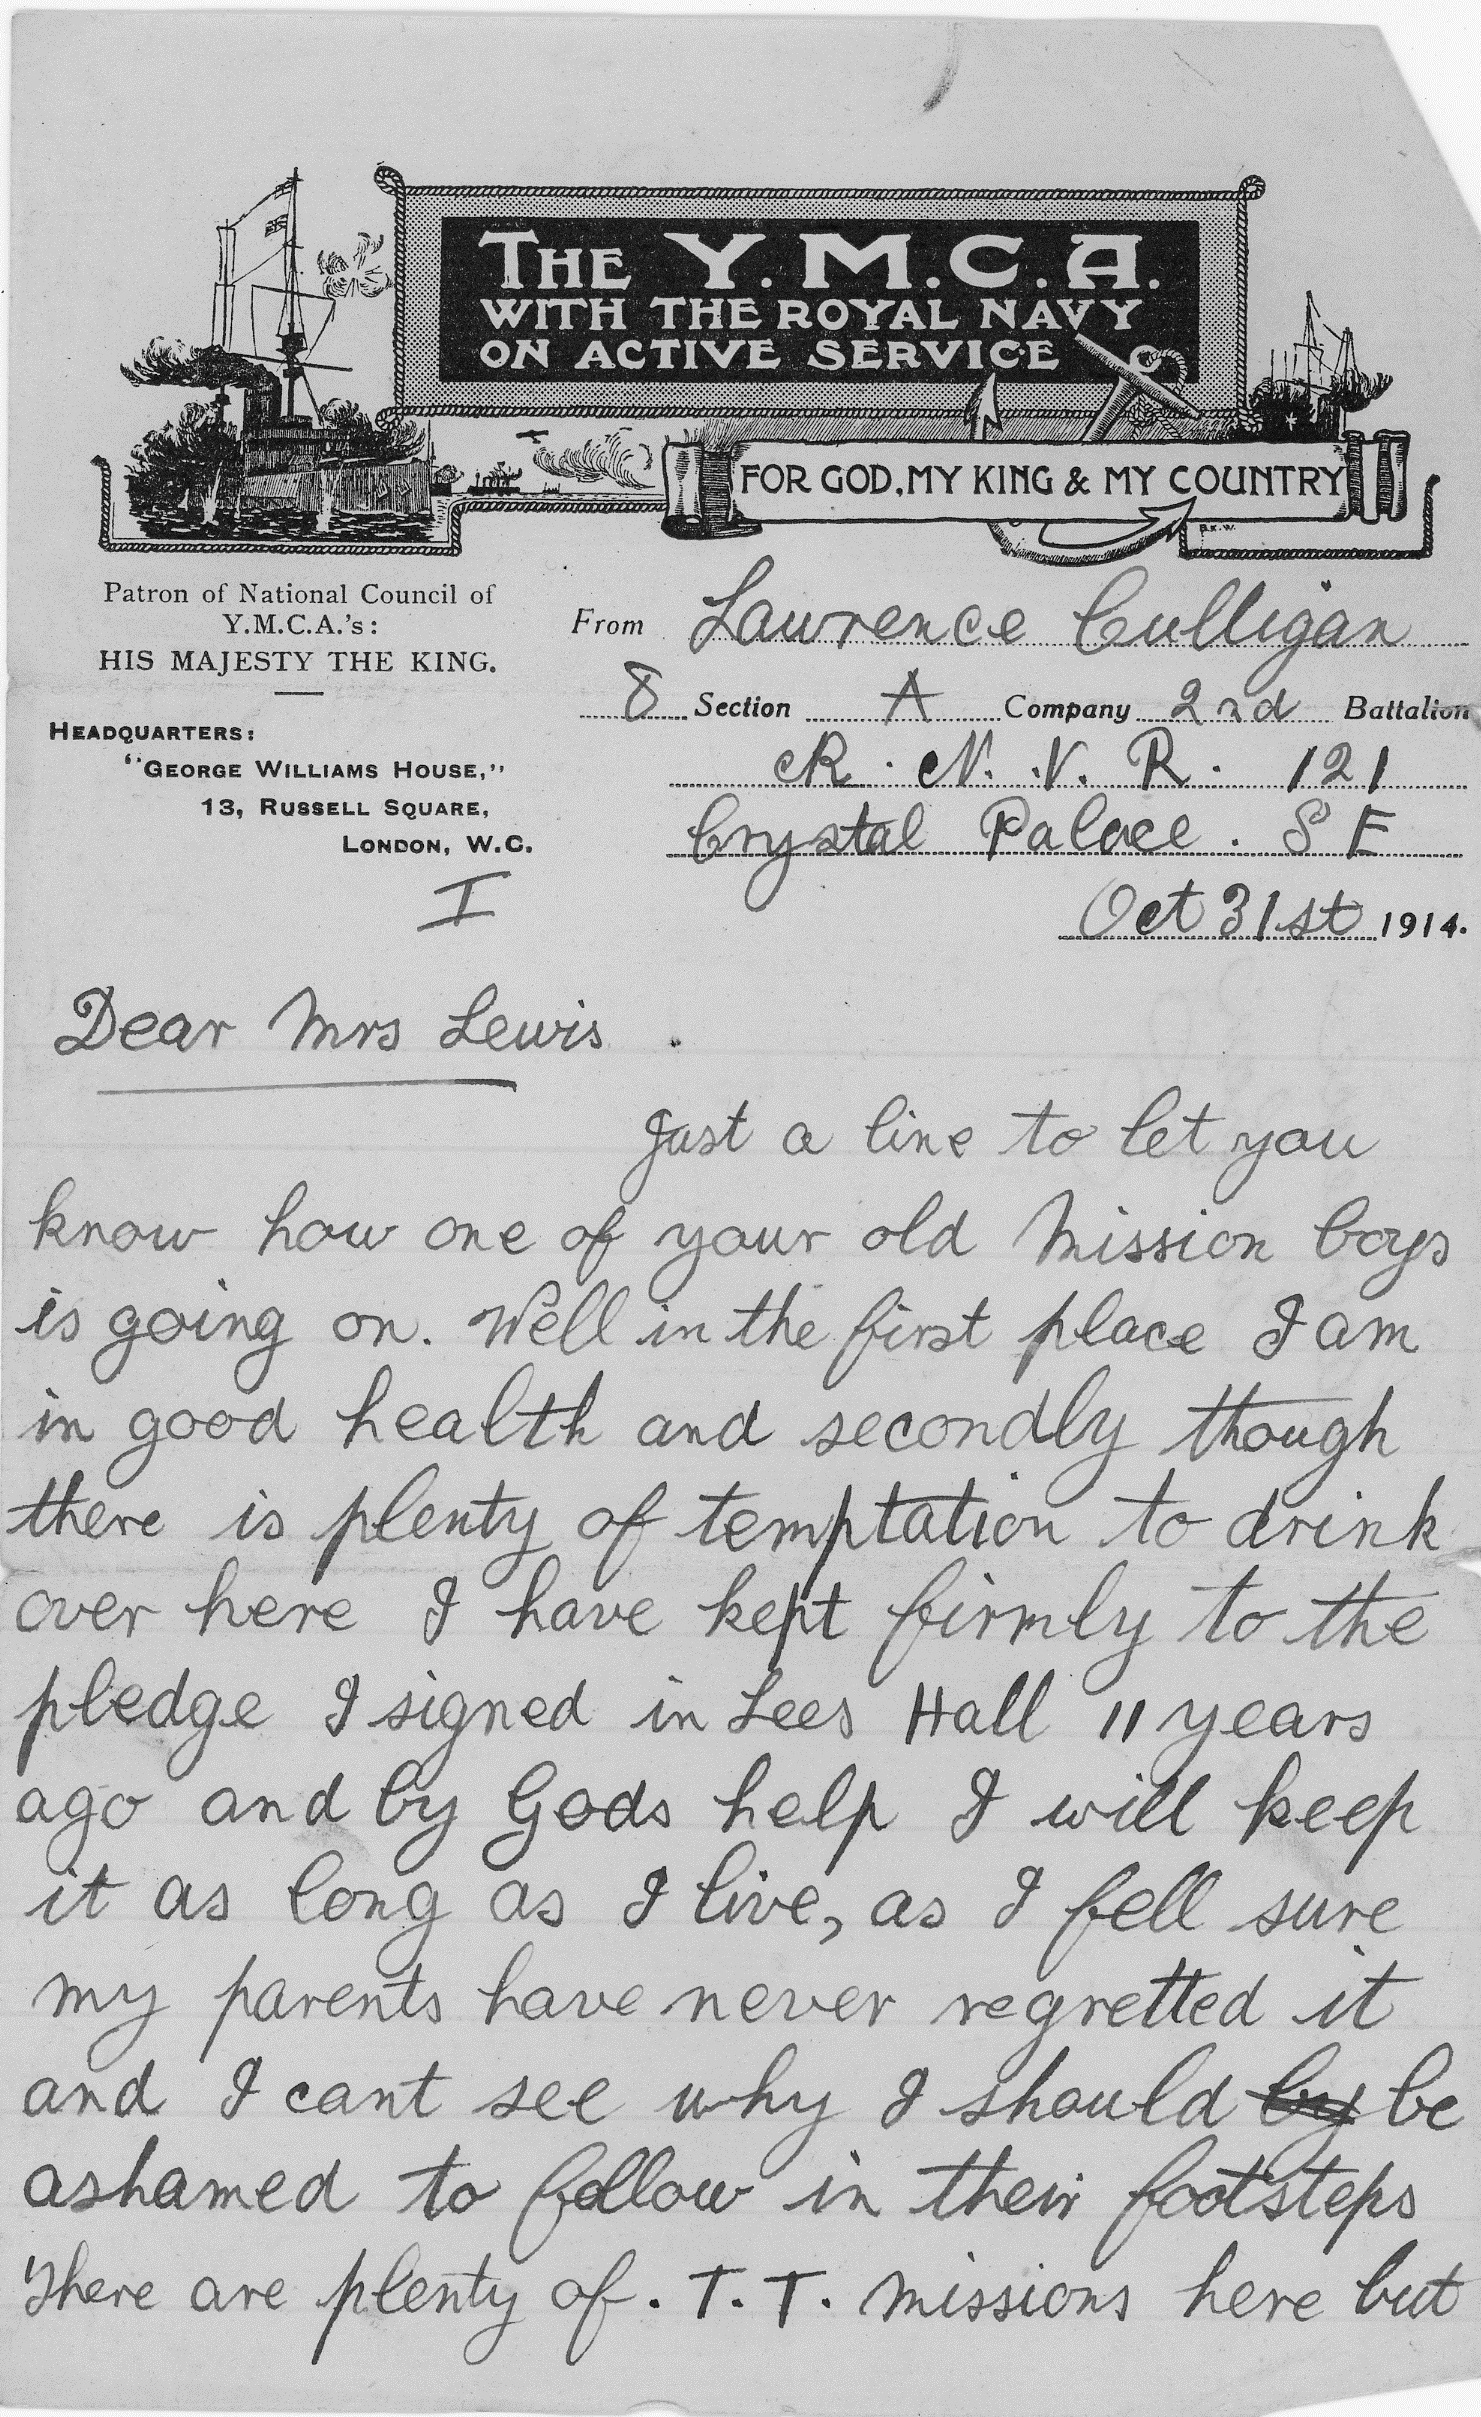 THE Y.M.C.A.
WITH THE ROYAL NAVY
ON ACTIVE SERVICE
FOR GOD, MY KING & MY COUNTRY
Patron of National Council of
Y.M.C.A.'s:
HIS MAJESTY THE KING.
HEADQUARTERS:
"GEORGE WILLIAMS HOUSE,"
13, RUSSELL SQUARE,
LONDON, W.C.
I
From Lawrence Culligan
8 Section A Company 2nd Battalion
R. N. V. R. 121
Crystal Palace. S E
Oct 31st 1914.
Dear Mrs Lewis.
Just a line to let you
know how one of your old Mission boys
is going on. Well in the first place I am
in good health and secondly though
there is plenty of temptation to drink
over here I have kept firmly to the
pledge I signed in Lees Hall 11 years
ago and by Gods help I will keep
it as long as I live, as I fell sure
my parents have never regretted it
and I cant see why I should by be
ashamed to follow in their footsteps
There are plenty of . T. T. missions here but